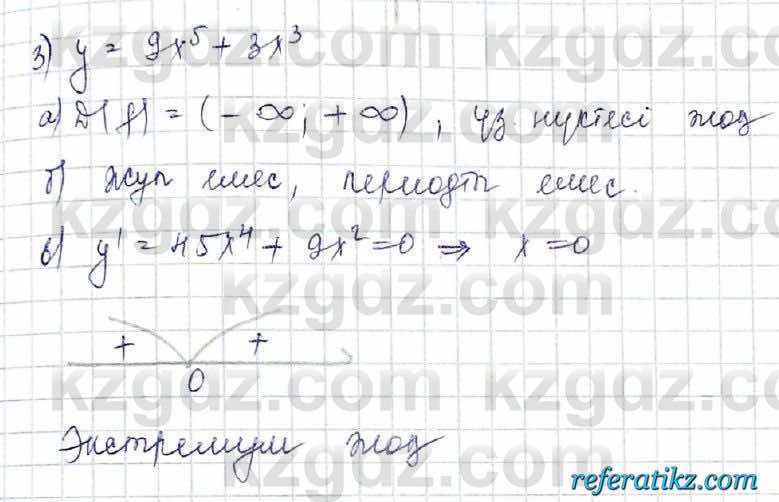 kzgdz.com
3) y = 9x⁵ + 3x³
а) D(f) = (- ∞; + ∞), үз. нүктесі жоқ
б) жұп емес, периодты емес.
в) y' = 45x⁴ + 9x² = 0 ⇒ x = 0
+ +
0
Экстремум жоқ
referatikz.com